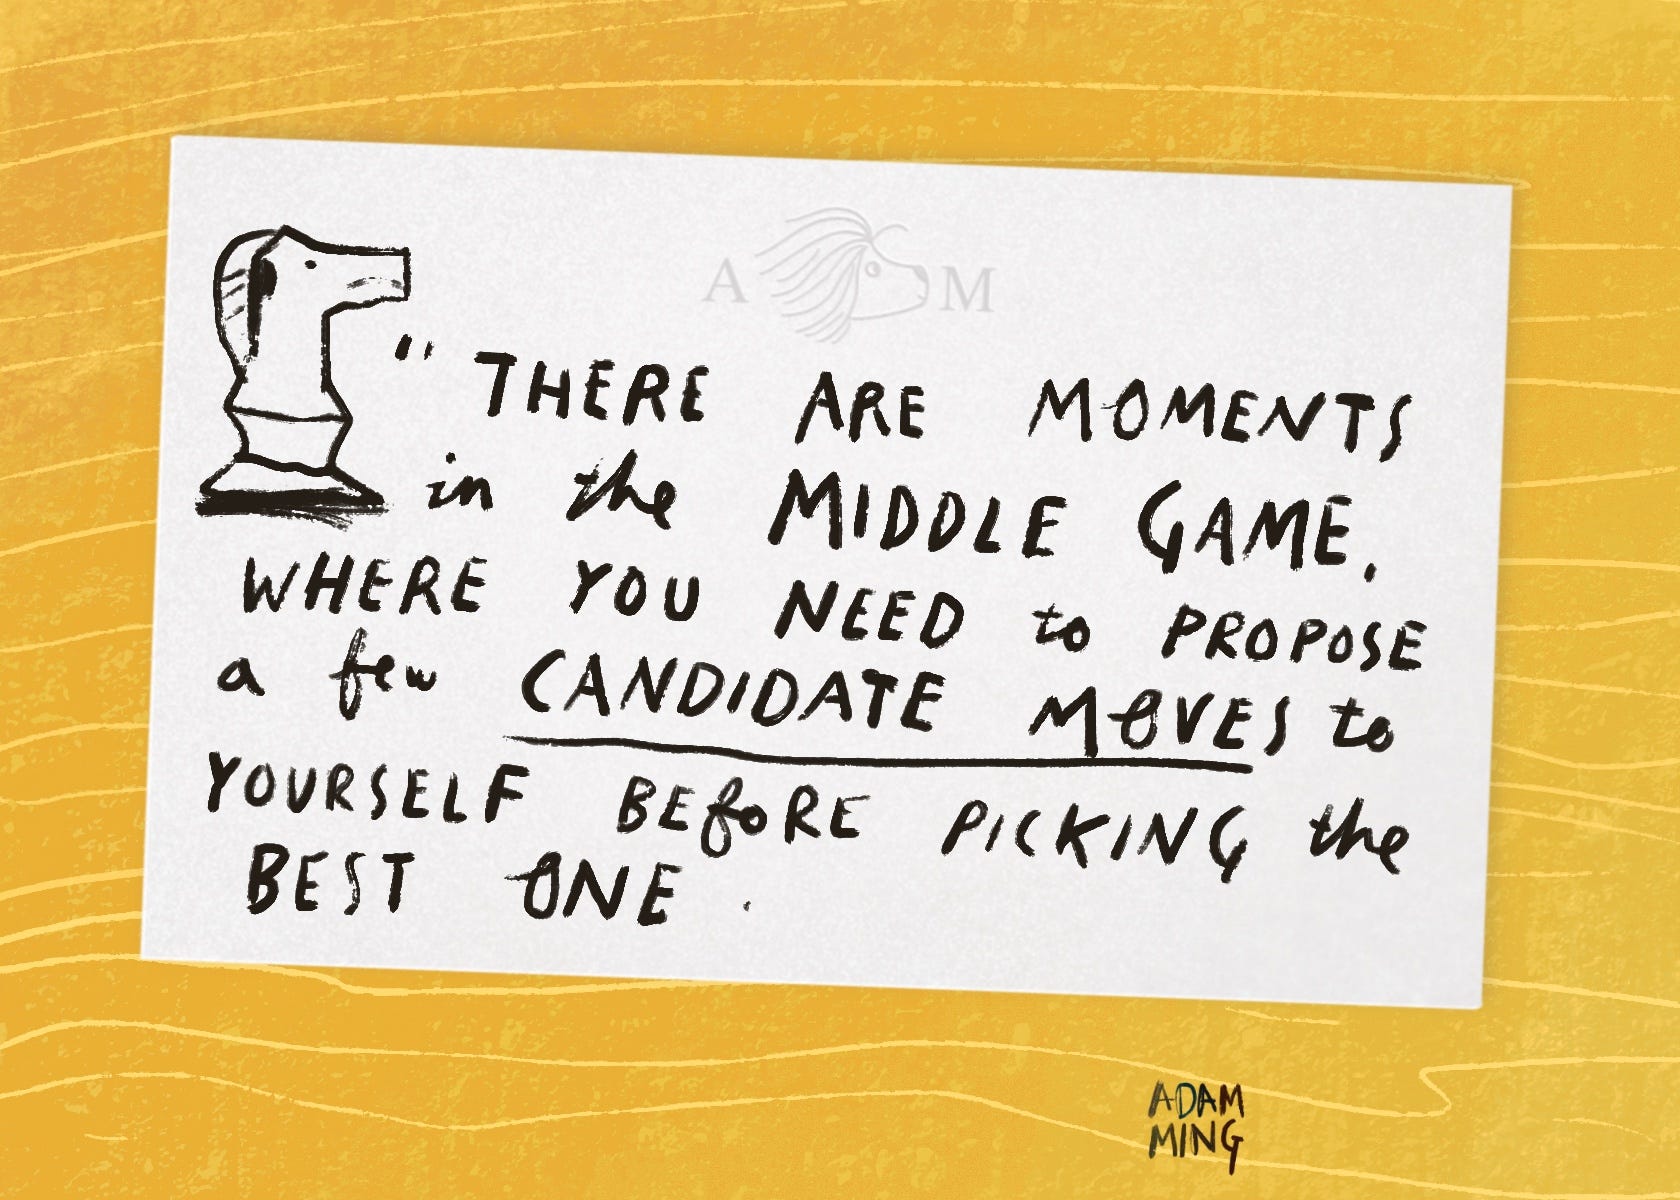 A M
" THERE ARE MOMENTS
in the MIDDLE GAME,
WHERE YOU NEED to PROPOSE
a few CANDIDATE MOVES to
YOURSELF BEfoRE PICKING the
BEST ONE .
ADAM
MING